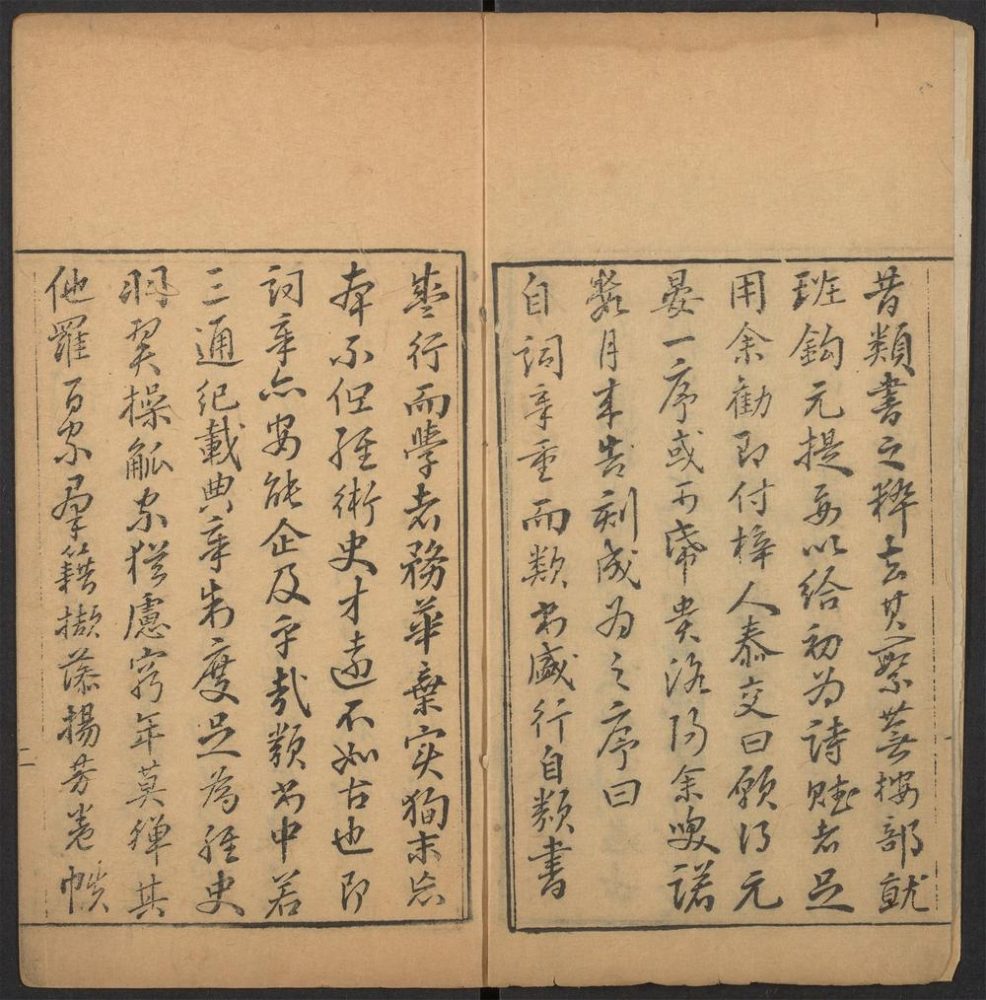 昔類書之粹去其繁蕪按部就
班鈎元提要以給初為詩賦者足
用余勸即付梓人泰交曰願得元
晏一序或可席貴洛陽余唯諾
數月来告刻成為之序曰
自詞章重而類書盛行自類書
盛行而學者務華棄实狥末忘
本不但經術史才遠不如古也即
詞章亦安能企及乎哉類书中若
三通紀載典章制度足為經史
羽翼操觚家猶慮窮年莫殫其
他羅百家羣籍擷藻揚芬卷帙